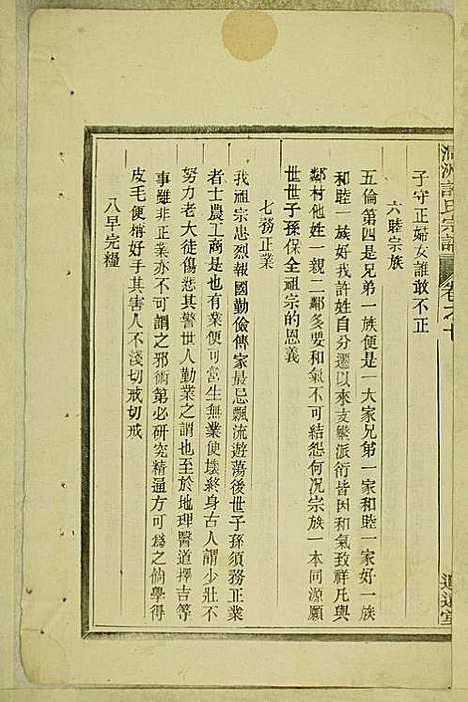 子守正婦女誰敢不正
六睦宗族
五倫第四是兄弟一族便是一大家兄弟一家和睦一家好一族
和睦一族好我許姓自分遷以來支繁派衍皆因和氣致祥凡與
鄰村他姓一親二鄰多要和氣不可結怨何况宗族一本同源願
世世子孫保全祖宗的恩義
七務正業
我祖宗忠烈報國勤儉傳家最忌飄流遊蕩後世子孫須務正業
者士農工商是也有業便可當生無業便壞終身古人謂少壯不
努力老大徒傷悲其警世人勤業之謂也至於地理醫道擇吉等
事雖非正業亦不可謂之邪術第必研究精通方可為之倘學得
皮毛便稱好手其害人不淺切戒切戒
八早完糧
許氏宗譜
卷之十